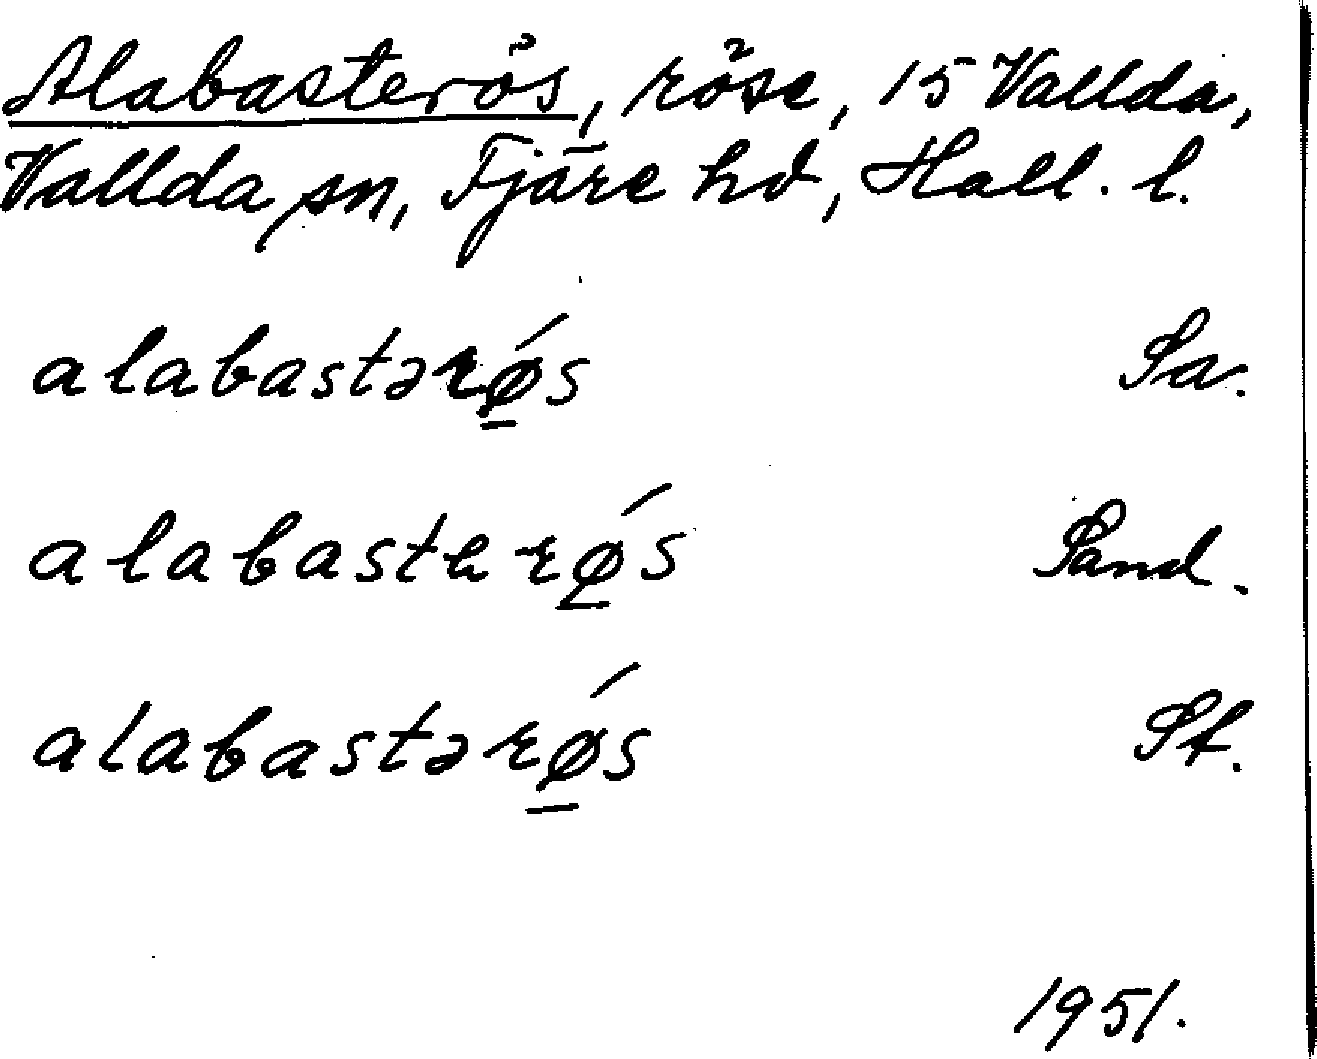 Alabasterös, röse, 15 Vallda,
Vallda sn, Fjäre hd, Hall. l.
alabastərǿ̱s Sa.
alabastʜrǿ̱s Sand.
alabastərǿ̱s St.
1951.